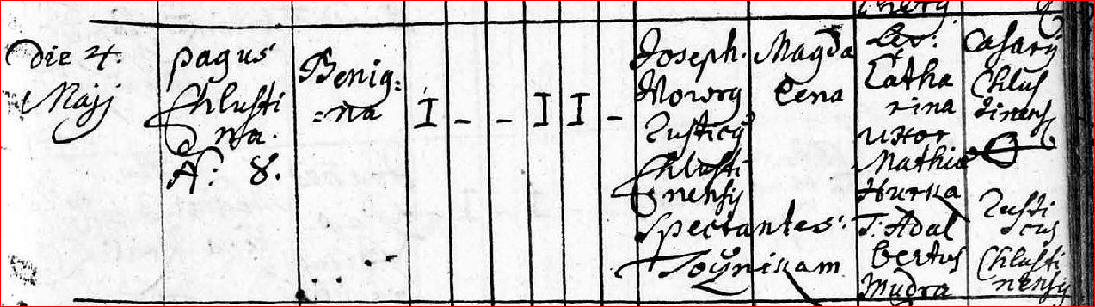 Die 4.
Maji
pagus
Chlusti
na.
N: 8.
Benig=
=na
I - - I I -
Joseph.
Nowy
Rusticy
Chlusti
nensy
Spectantes:
Toÿniкam
Magda
lena
Lev:
Catha
rina
uxor
Mathiæ
Hurka
T: Adal
bertus
Mudra
Casary
Chlus
tinens
Rusti
cus
Chlusti
nensy